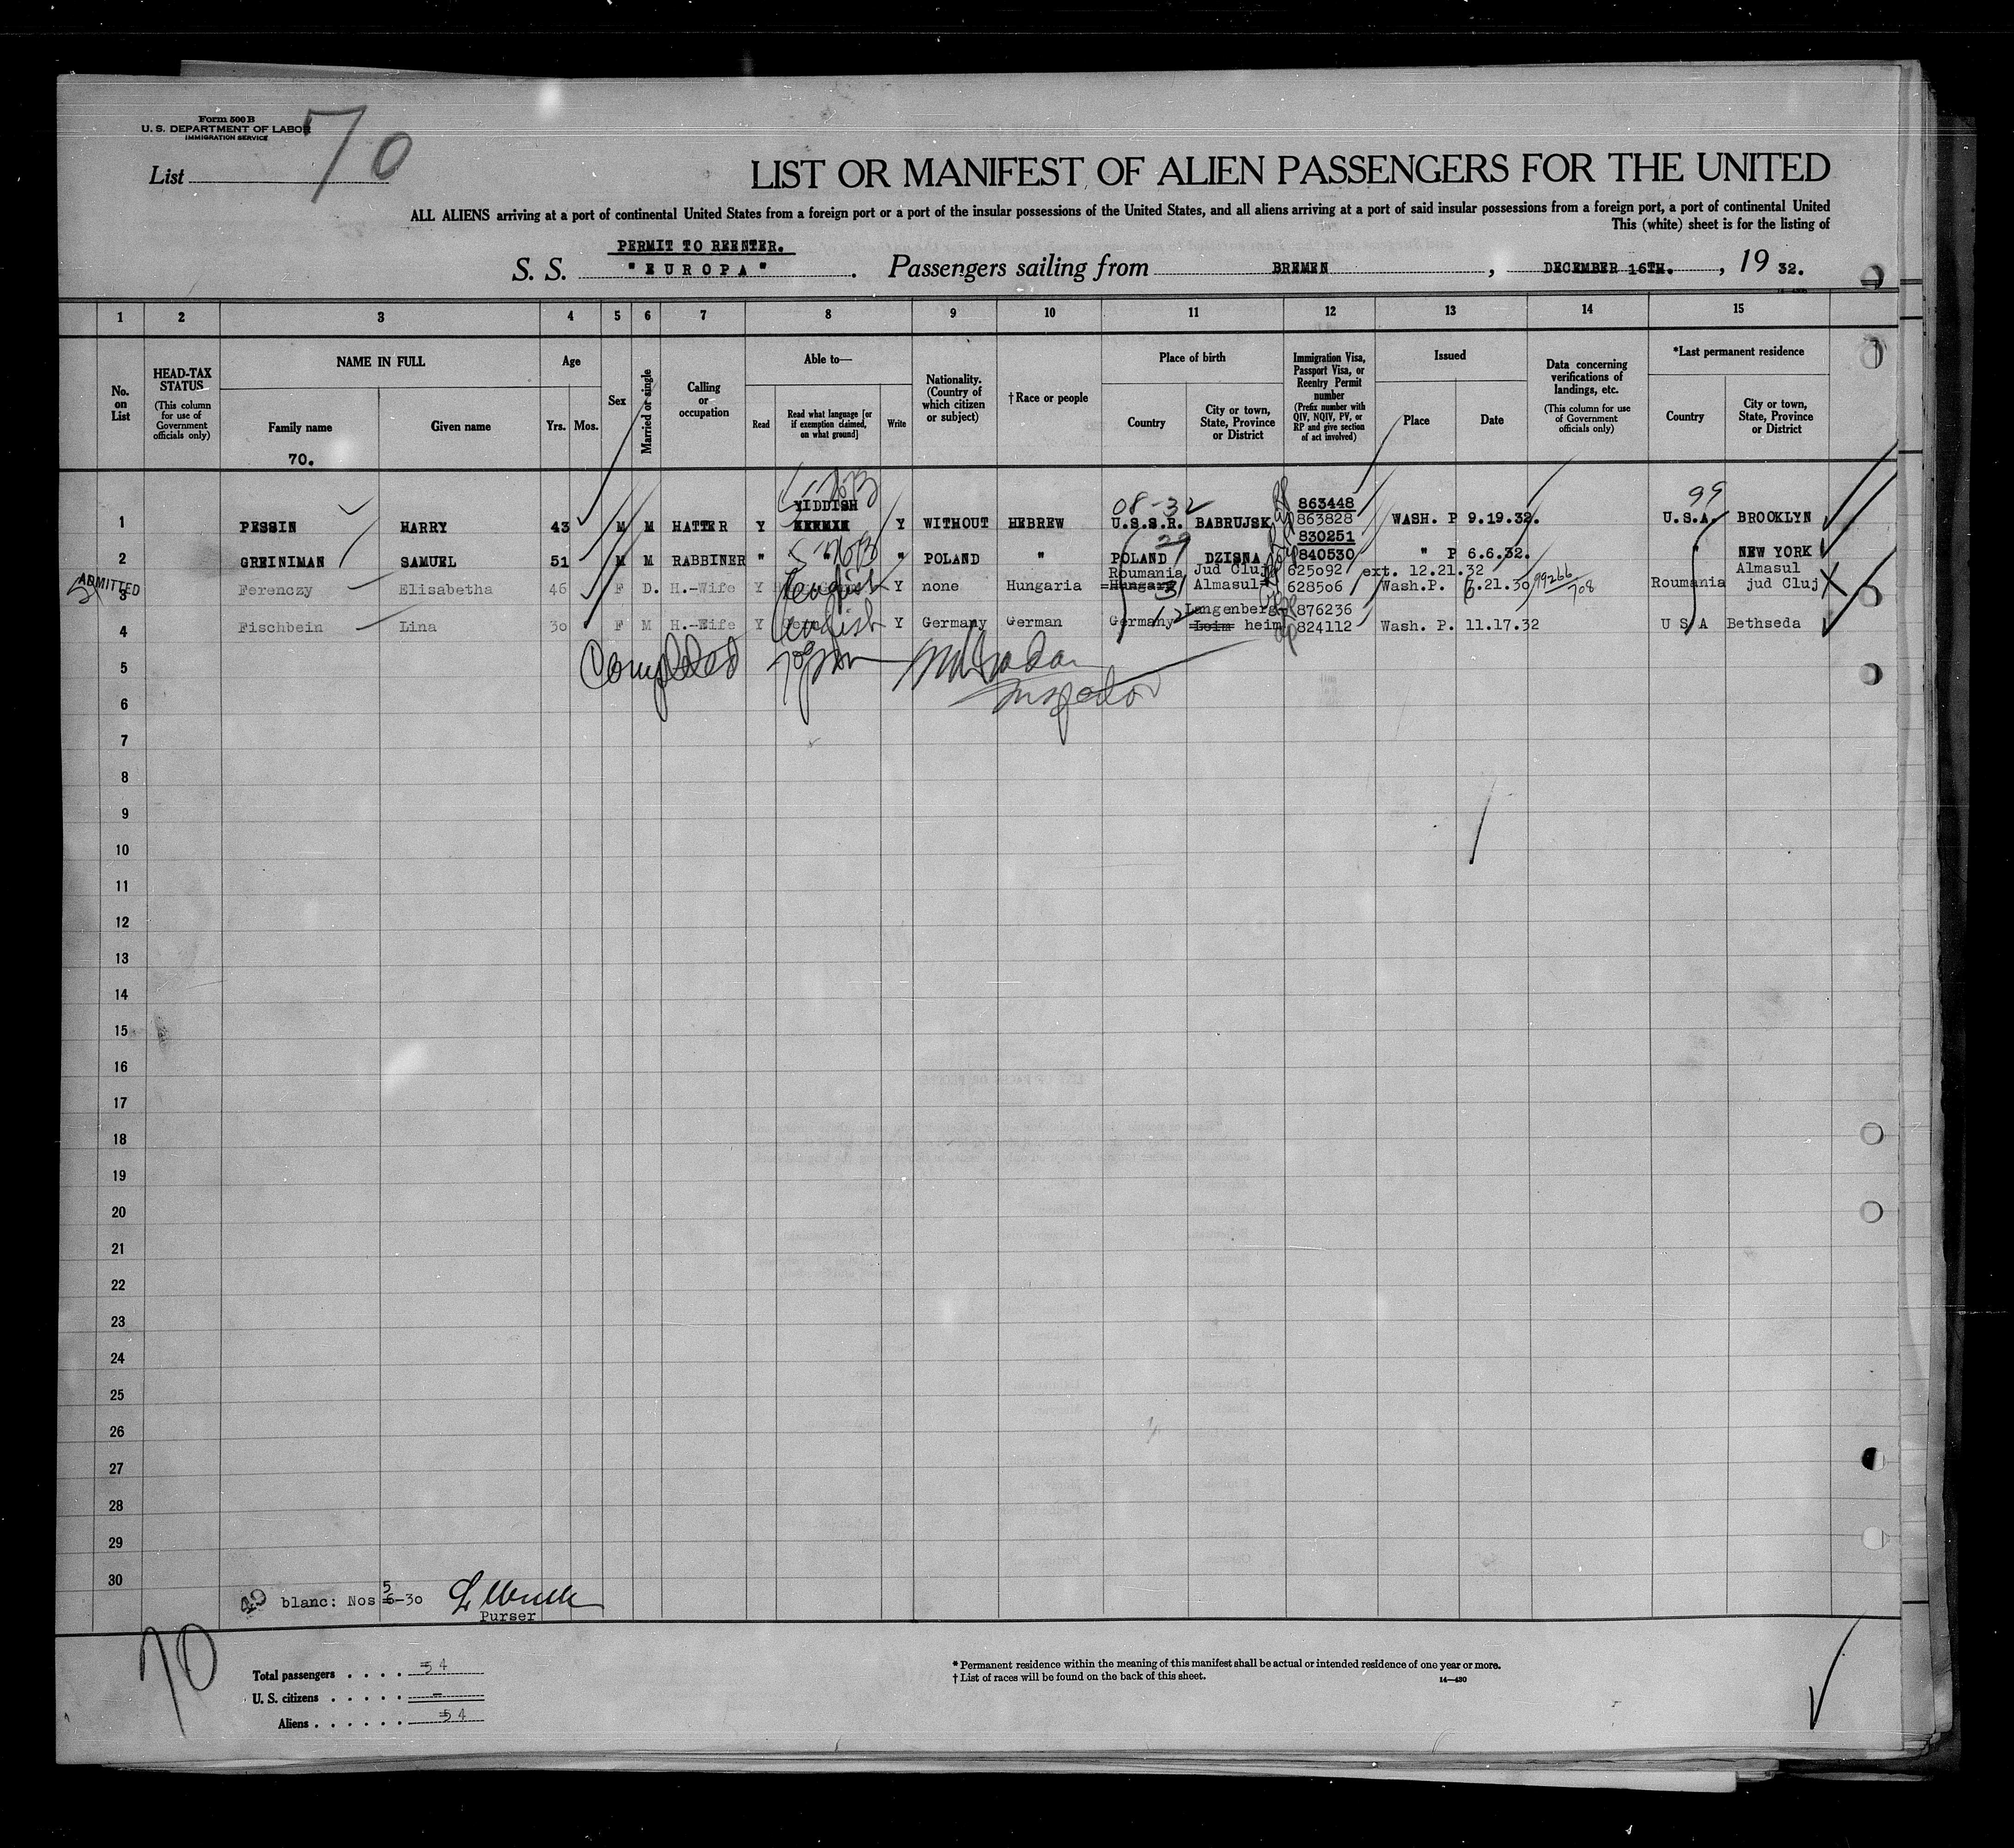 Form 500 B
U. S. DEPARTMENT OF LABOR
IMMIGRATION SERVICE
70
List
LIST OR MANIFEST OF ALIEN PASSENGERS FOR THE UNITED
ALL ALIENS arriving at a port of continental United States from a foreign port or a port of the insular possessions of the United States, and all aliens arriving at a port of said insular possessions from a foreign port, a port of continental United
This (white) sheet is for the listing of
PERMIT TO REENTER.
S. S. "EUROPA". Passengers sailing from BREMEN, DECEMBER 16TH., 19 32.
1 2 3 4 5 6 7 8 9 10 11 12 13 14 15
No. on List
HEAD-TAX STATUS (This column for use of Government officials only)
NAME IN FULL
Family name
Given name
70.
Age
Yrs. Mos.
Sex
Married or single
Calling or occupation
Able to—
Read
Read what language [or if exemption claimed, on what ground]
Write
Nationality. (Country of which citizen or subject)
† Race or people
Place of birth
Country
City or town, State, Province or District
Immigration Visa, Passport Visa, or Reentry Permit number (Prefix number with QIV, NQIV, PV, or RP and give section of act involved)
Issued
Place
Date
Data concerning verifications of landings, etc. (This column for use of Government officials only)
*Last permanent residence
Country
City or town, State, Province or District
YIDDISH 08-32 863448 99
1 PESSIN HARRY 43 M M HATTER Y Y WITHOUT HEBREW U.S.S.R. BABRUJSK 863828 WASH. P 9.19.32. U.S.A. BROOKLYN
830251
2 GREINIMAN SAMUEL 51 M M RABBINER " " " POLAND " POLAND DZISNA 840530 " P 6.6.32. " NEW YORK
Roumania Jud Cluj 625092 ext. 12.21.32 Almasul
ADMITTED 3 Ferenczy Elisabetha 46 F D. H.-Wife Y English Y none Hungaria Hungary Almasul 628506 Wash.P. 6.21.30 99266/708 Roumania jud Cluj
Langenberg- 876236
4 Fischbein Lina 30 F M H.-Wife Y English Y Germany German Germany heim 824112 Wash. P. 11.17.32 U S A Bethseda
Completed
Inspector
5
6
7
8
9
10
11
12
13
14
15
16
17
18
19
20
21
22
23
24
25
26
27
28
29
30
blanc: Nos 5 6-30
Purser
70
Total passengers . . . . 4
U. S. citizens . . . . . —
Aliens . . . . . . 4
* Permanent residence within the meaning of this manifest shall be actual or intended residence of one year or more.
† List of races will be found on the back of this sheet.
14—430